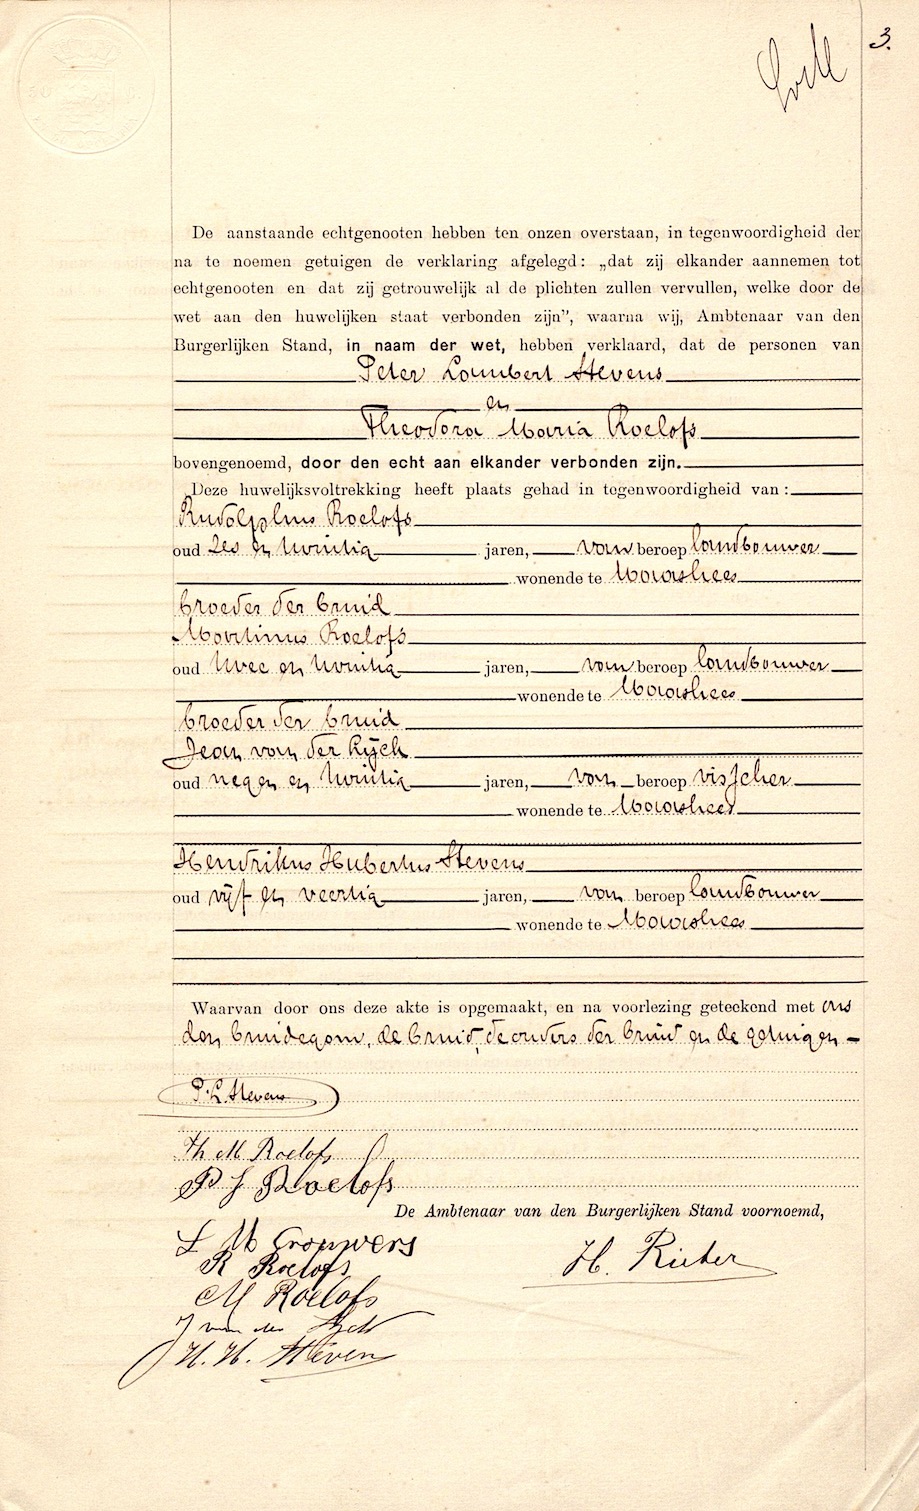 3.
De aanstaande echtgenooten hebben ten onzen overstaan, in tegenwoordigheid der
na te noemen getuigen de verklaring afgelegd: „dat zij elkander aannemen tot
echtgenooten en dat zij getrouwelijk al de plichten zullen vervullen, welke door de
wet aan den huwelijken staat verbonden zijn”, waarna wij, Ambtenaar van den
Burgerlijken Stand, in naam der wet, hebben verklaard, dat de personen van
Peter Lambert Stevens
en
Theodora Maria Roelofs
bovengenoemd, door den echt aan elkander verbonden zijn.
Deze huwelijksvoltrekking heeft plaats gehad in tegenwoordigheid van:
Rudolphus Roelofs
oud zes en twintig jaren, van beroep landbouwer
wonende te Maashees
broeder der bruid
Martinus Roelofs
oud twee en twintig jaren, van beroep landbouwer
wonende te Maashees
broeder der bruid
Jean van der
oud negen en twintig jaren, van beroep visscher
wonende te Maashees
Hendrikus Hubertus Stevens
oud vijf en veertig jaren, van beroep landbouwer
wonende te Maashees
Waarvan door ons deze akte is opgemaakt, en na voorlezing geteekend met ons
den bruidegom, de bruid, de ouders der bruid en de getuigen
P. L. Stevens
Th M Roelofs
P J Roelofs
De Ambtenaar van den Burgerlijken Stand voornoemd,
L M Crouwers
H. Rieter
R Roelofs
M Roelofs
J van der
H. H. Stevens